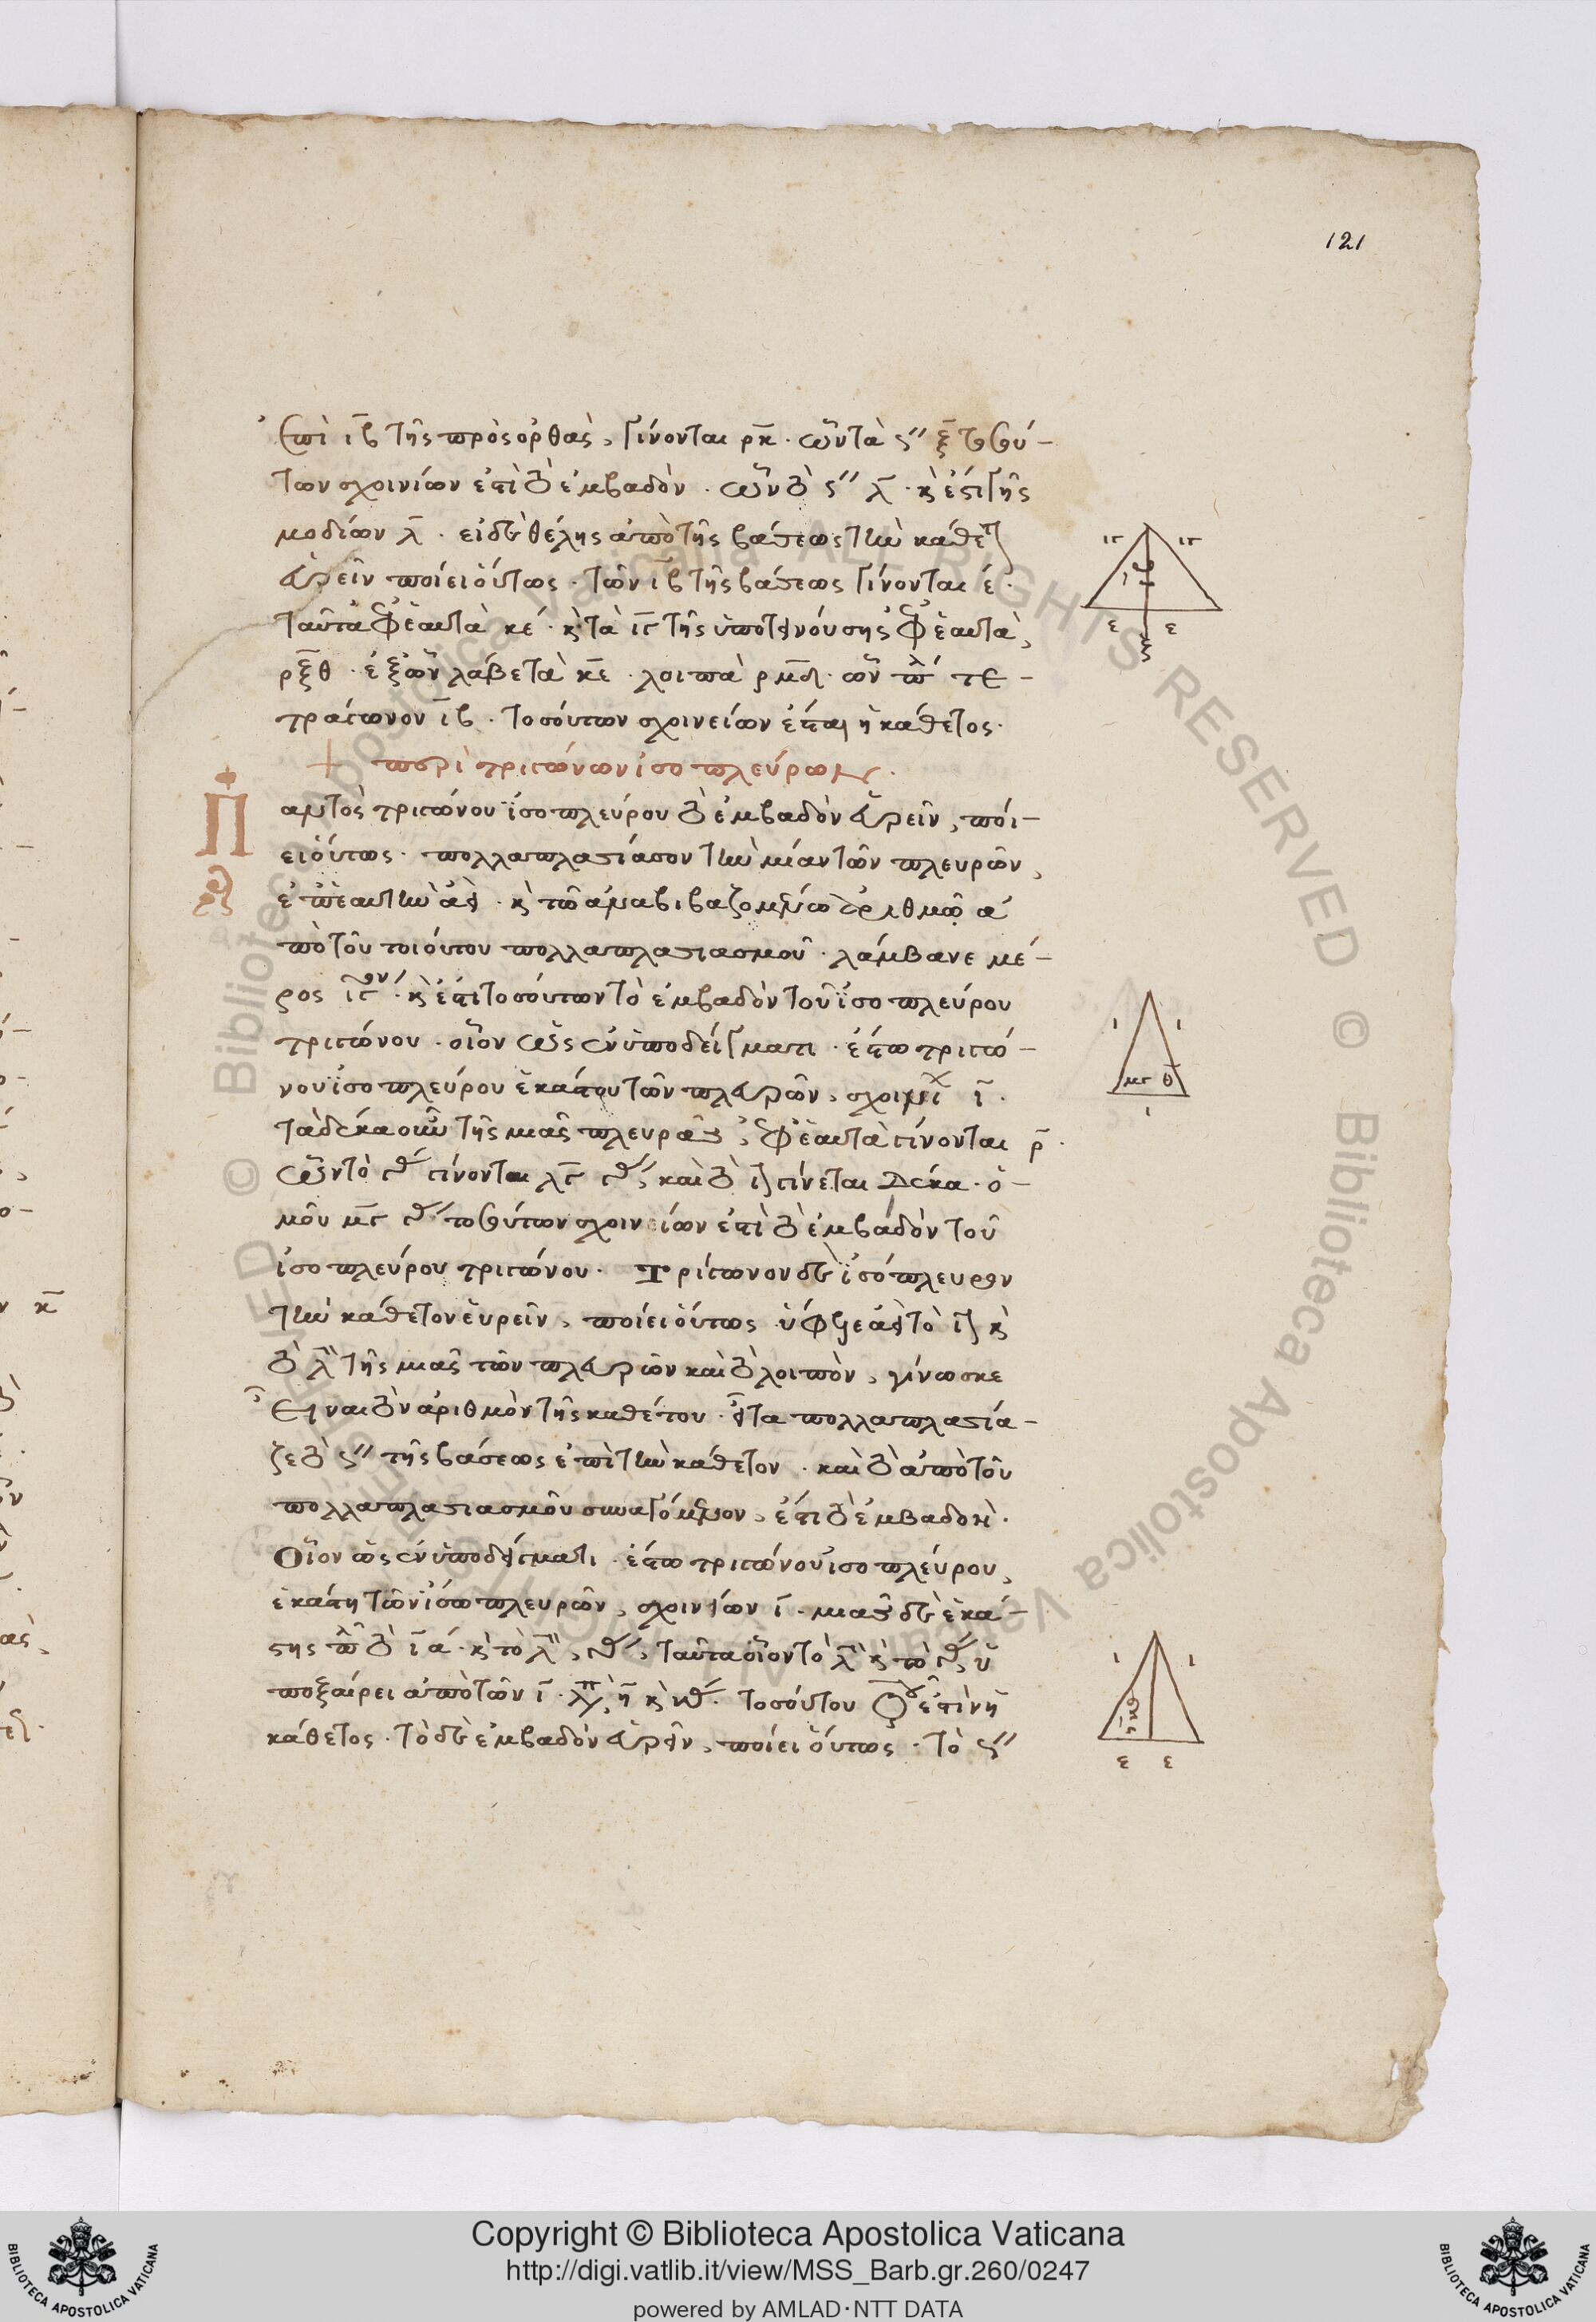 121
ἐπὶ ιβ τῆς πρὸς ὀρθὰς, γίνονται ρκ. ὧν τὰ ς´´ ξ τοσού-
των σχοινίων ἐστὶ τὸ ἐμβαδόν. ὧν τὸ ς´´ λ. κ ἔστι γῆς
μοδίων λ. εἰ δὲ θέλης ἀπὸ τῆς βάσεως τὴν κάθετ
εὑρεῖν ποίει οὕτως. τῶν ιβ τῆς βάσεως γίνονται ε.
ταῦτα ἐφ ἑαυτὰ κε. κ τὰ ιγ τῆς ὑποτεινούσης ἐφ ἑαυτὰ,
ρξθ. ἐξ ὧν λάβε τὰ κε. λοιπὰ ρμδ. ὧν πλ τε-
τράγωνον ιβ. τοσούτων σχοινείων ἔσται ἡ κάθετος.
+ περὶ τριγώνων ἰσοπλεύρων.
Παντὸς τριγώνου ἰσοπλεύρου τὸ ἐμβαδὸν εὑρεῖν, ποί-
ει οὕτως. πολλαπλασίασον τὴν μίαν τῶν πλευρῶν,
ἐφ ἑαυτὴν ἀεὶ. κ τῶ ἀναβιβαζομένω ἀριθμῶ ἀ
πὸ τοῦ τοιούτου πολλαπλασιασμοῦ. λάμβανε μέ-
ρος ιγον. κ ἔστι τοσούτων τὸ ἐμβαδὸν τοῦ ἰσοπλεύρου
τριγώνου. οἷον ὡς ἐν ὑποδείγματι. ἔστω τριγώ-
νου ἰσοπλεύρου ἑκάστου τῶν πλευρῶν, σχοινι ι.
τὰ δέκα οὖν τῆς μιᾶς πλευρᾶς, ἐφ ἑαυτὰ γίνονται ρ.
μοῦ μγ τοσούτων σχοινείων ἐστὶ τὸ ἐμβαδὸν τοῦ
ἰσοπλεύρου τριγώνου. Τρίγωνον δὲ ἰσόπλευρον
τὴν κάθετον εὑρεῖν, ποίει οὕτως. ὕφειλε ἀεὶ τὸ ι κ
τὸ λ τῆς μιᾶς τῶν πλευρῶν καὶ τὸ λοιπὸν, γίνωσκε
εἶναι τὸν ἀριθμὸν τῆς καθέτου. εἶτα πολλαπλασία-
ζε τὸ ς´´ τῆς βάσεως ἐπὶ τὴν κάθετον. καὶ τὸ ἀπὸ τοῦ
πολλαπλασιασμοῦ συναγόμενον, ἐστὶ τὸ ἐμβαδόν.
Οἷον ὡς ἐν ὑποδείγματι. ἔστω τριγώνου ἰσοπλεύρου,
ἑκάστη τῶν ἰσοπλευρῶν, σχοινίων ι. μιᾶς δὲ ἑκά-
ποξαίρει ἀπὸ τῶν ι. τοσούτου ἐστὶν ἡ
κάθετος. τὸ δὲ ἐμβαδὸν εὑρεῖν, ποίει οὕτως. τὸ ς´´
ιγ ιγ
ε ε
ι ι
μγ θ
ι
ι ι
ε ε
Copyright © Biblioteca Apostolica Vaticana
http://digi.vatlib.it/view/MSS_Barb.gr.260/0247
powered by AMLAD·NTT DATA
BIBLIOTECA APOSTOLICA VATICANA
BIBLIOTECA APOSTOLICA VATICANA